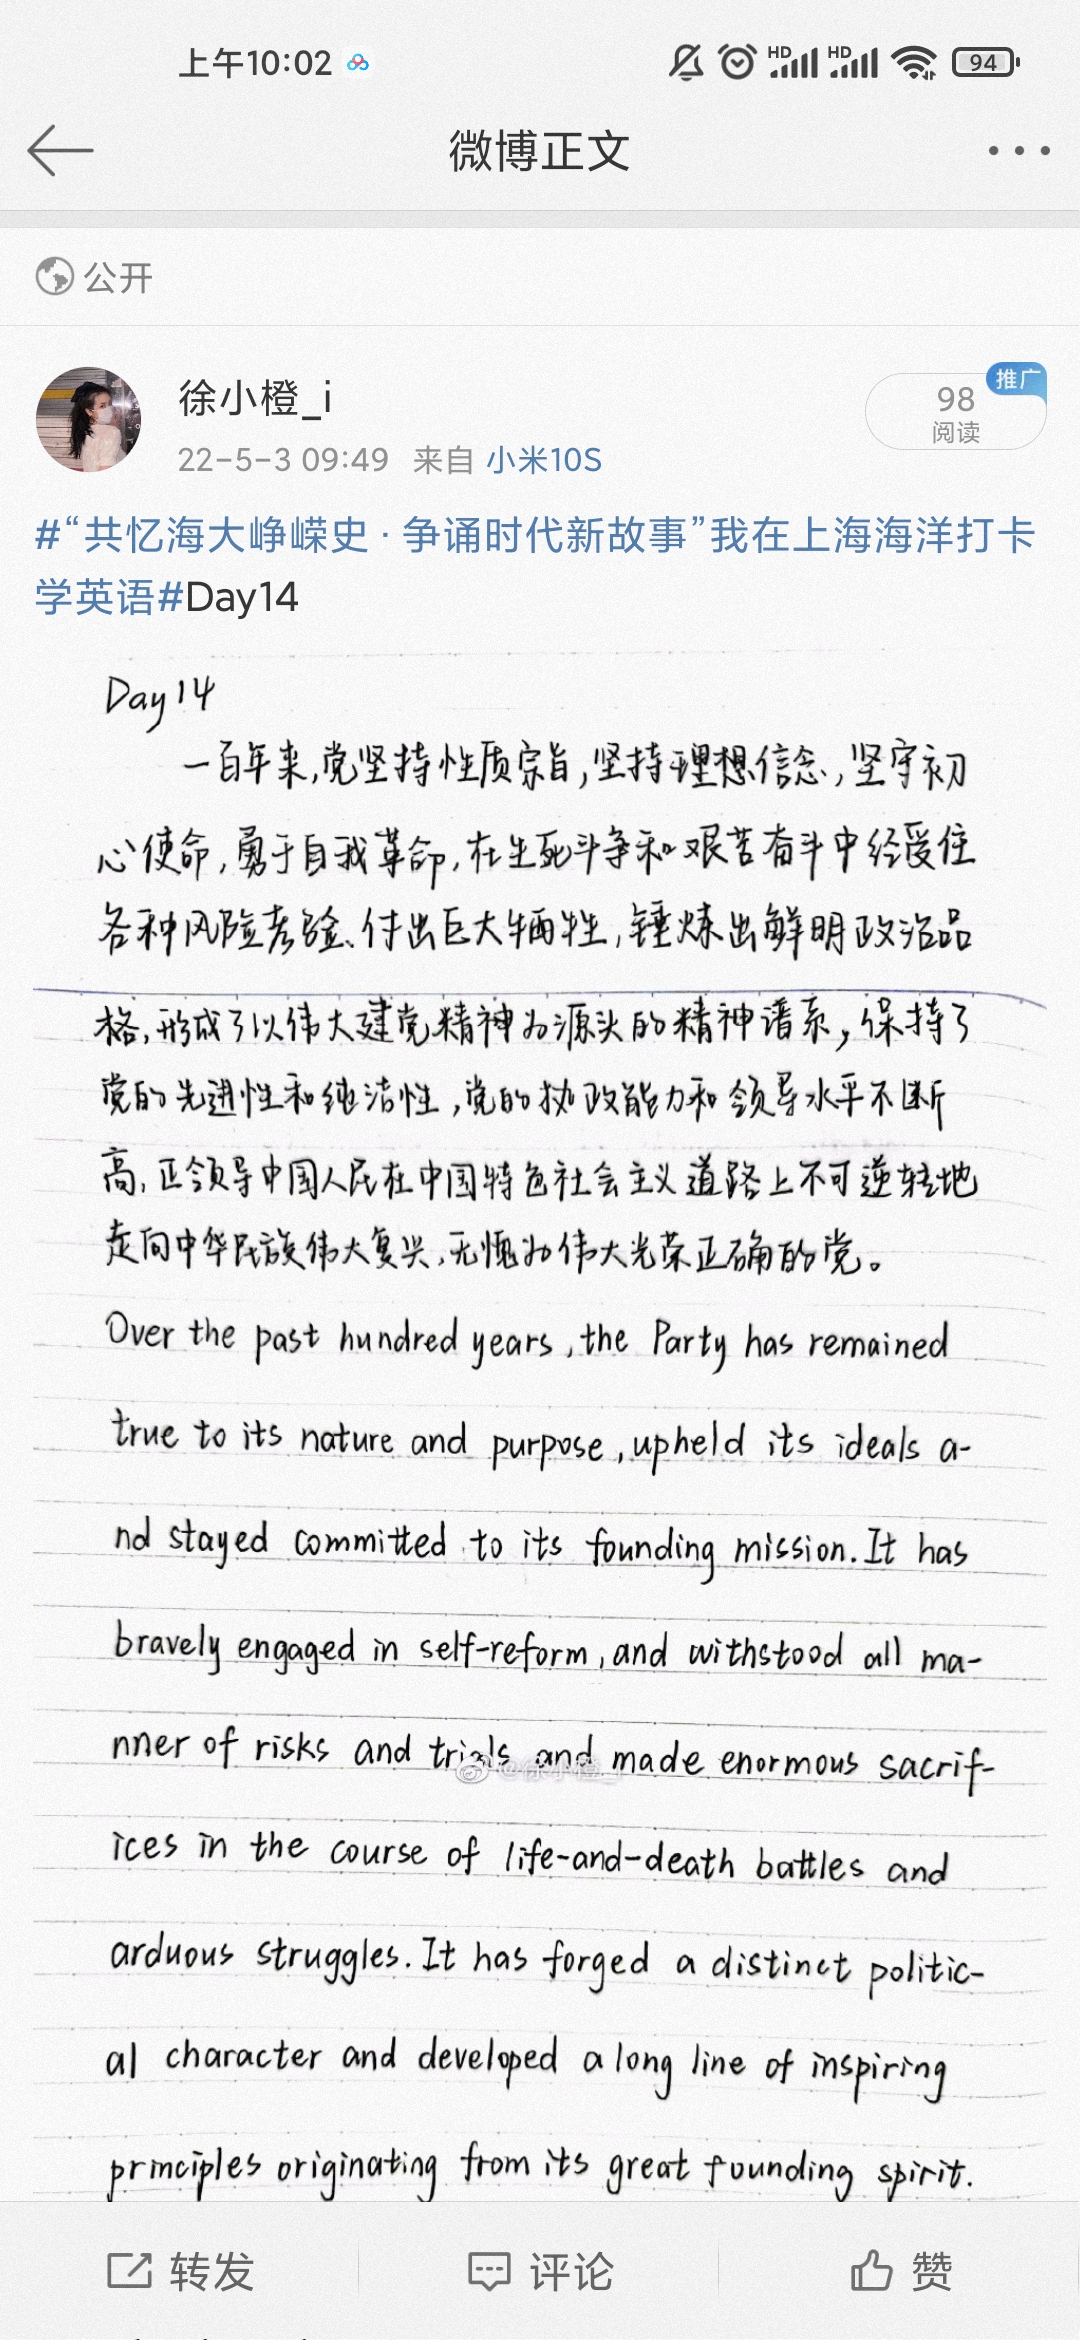 上午10:02
HD HD 94
微博正文
公开
徐小橙_i
22-5-3 09:49 来自 小米10S
98
阅读
推广
#“共忆海大峥嵘史·争诵时代新故事”我在上海海洋打卡
学英语#Day14
Day14
一百年来,党坚持性质宗旨,坚持理想信念,坚守初
心使命,勇于自我革命,在生死斗争和艰苦奋斗中经受住
各种风险考验、付出巨大牺牲,锤炼出鲜明政治品
格,形成了以伟大建党精神为源头的精神谱系,保持了
党的先进性和纯洁性,党的执政能力和领导水平不断
高,正领导中国人民在中国特色社会主义道路上不可逆转地
走向中华民族伟大复兴,无愧为伟大光荣正确的党。
Over the past hundred years, the Party has remained
true to its nature and purpose, upheld its ideals a-
nd stayed committed to its founding mission. It has
bravely engaged in self-reform, and withstood all ma-
nner of risks and trials and made enormous sacrif-
ices in the course of life-and-death battles and
arduous struggles. It has forged a distinct politic-
al character and developed a long line of inspiring
principles originating from its great founding spirit.
@徐小橙_i
转发 评论 赞